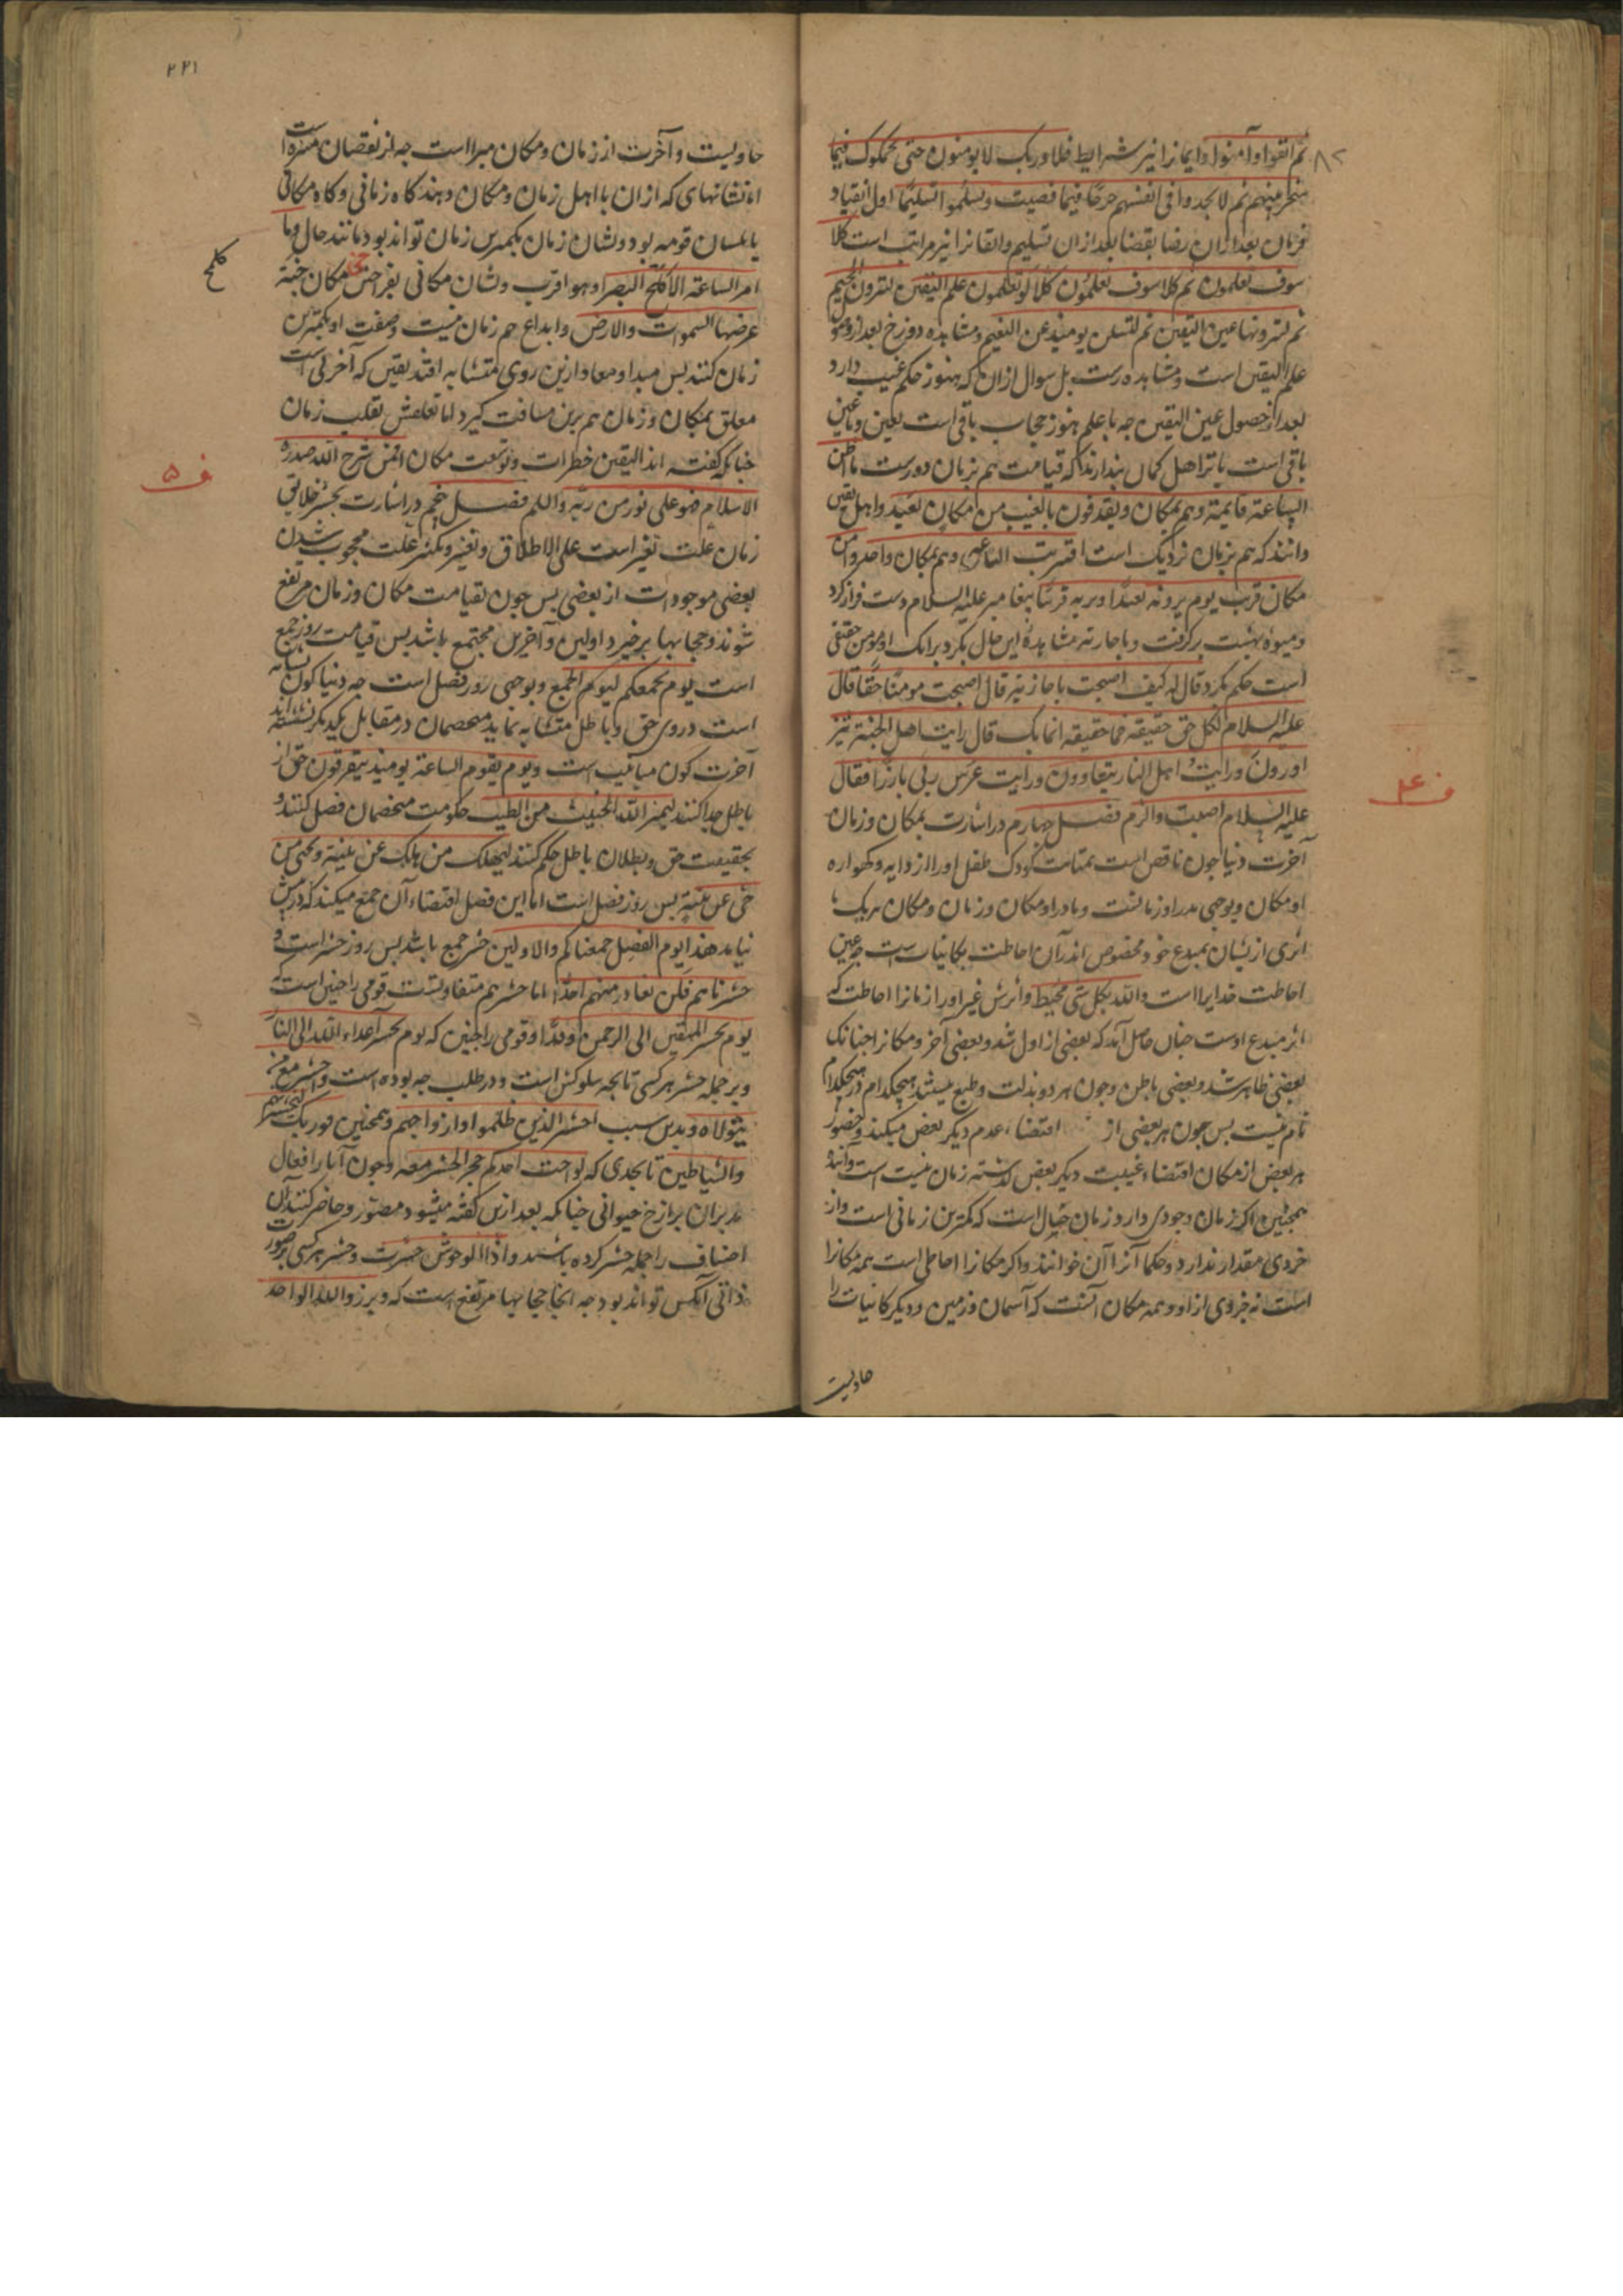 ثم اتقوا و آمنوا و ایمانرا نیز شرایط فلا وربک لا یومنون حتی یحکموک فیما
شجر بینهم ثم لا یجدوا فی انفسهم حرجا فیما قضیت ویسلموا تسلیما اول انقیاد
فرمان بعد ازان رضا بقضا بعد ازان تسلیم و ایقانرا نیز مراتب است کلا
سوف تعلمون ثم کلا سوف تعلمون کلا لو تعلمون علم الیقین لترون الجحیم
ثم لترونها عین الیقین ثم لتسلن یومئذ عن النعیم و مشاهده دوزخ بعد از
علم الیقین است و مشاهده است بل سوال ازان که هنوز حکم غیب دارد
بعد از حصول عین الیقین جه با علم هنوز حجاب باقی است بعین و با عین
باقی است باثر اهل کمان بندارند که قیامت هم بزمان دورست ما اظن
الساعة قایمة و هم بمکان و یقذفون بالغیب من مکان بعید و اهل یقین
دانند که هم بزمان نزدیک است اقتربت الساعه و هم بمکان واخذوا من
مکان قریب یوم یرونه بعیدا و نریه قریبا بیغامبر علیه السلام دست فراز کرد
و میوه بهشت برکرفت و باحارثه مشاهده این حال بکرد برانک او مومن حقیقی
است حکم بکرد قال له کیف اصبحت یا حارثة قال اصبحت مومنا حقا قال
علیه السلام لکل حق حقیقة فما حقیقة ایمانک قال رایت اهل الجنة یتز
اورون ورایت اهل النار یتعاوون ورایت عرش ربی بارزا فقال
علیه السلام اصبت والزم فصل جهارم در اشارت بمکان وزمان
آخرت دنیا جون ناقص است بمثابت کودک طفل اورا از دایه و کهواره
او مکان و بوجهی بدر او زمانست و مادر او مکان و زمان و مکان هریک با
اثری از یشان بمبدع خود مخصوص اند آن احاطت بکاینات است جه عین
احاطت خدایرا است والله بکل شی محیط واثرش غیر اورا زمانرا احاطت که
اثر مبدع اوست جنان حاصل آمد که بعضی از اول شد و بعضی آخر و مکانرا جنانک
بعضی ظاهر شد و بعضی باطن وجون هر دو بذات وطبع هیچکدام در هیچکدام
تام نیست بس جون هر بعضی از اقتضاء عدم دیکر بعض میکند و حضور
هر بعض از مکان اقتضاء غیبت دیکر بعض کذشته زمان نیست است و آینده
همجنین اکر زمان وجودی دارد زمان حال است که کمترین زمانی است و از
خردی مقدار ندارد و حکما آنرا آن خوانند و اکر مکانرا احاطی است همه مکانرا
است نه جزوی از او و همه مکان آنست که آسمان و زمین و دیکر کاینات را
حاویست
ف ۴
۲۲۱
حاویست و آخرت از زمان و مکان مبرا است جه از نقصان منزه است
اما نشانهای که ازان با اهل زمان و مکان دهند کاه زمانی و کاه مکانی
یا بلسان قومه بود و نشان زمان بکمترین زمان تواند بود مانند حال وما
امر الساعة الا کلمح البصر او هو اقرب و نشان مکانی بفراختر مکان جنة
عرضها السموات والارض وابداع هم زمان نیست وصفت او بکمترین
زمان کنند بس مبدا و معاد ازین روی متشابه افتد یقین که آخر است
معلق بمکان و زمان هم برین مسافت کیرد اما تعلقش تقلب زمان
جنانکه کفته اند الیقین خطرات و توسعت مکان افمن شرح الله صدره
للاسلام فهو علی نور من ربه والله فصل پنجم در اشارت بحشر خلایق
زمان علت تغیر است علی الاطلاق و تغیر و تکثر علت محجوب شدن
بعضی موجودات از بعضی بس جون بقیامت مکان و زمان مرتفع
شوند و حجابها برخیزد اولین و آخرین مجتمع باشد بس قیامت روز جمع
است یوم یجمعکم لیوم الجمع و بوجهی روز فصل است جه دنیا کون تشابه
است دروی حق و باطل متشابه نماید متخصمان در مقابل یکدیکر نشسته اند
آخرت کون مباینت است ویوم یقوم الساعة یومئذ یتفرقون حق از
باطل جدا کنند لیمیز الله الخبیث من الطیب حکومت متخصمان فصل کنند و
بحقیقت حق و بطلان باطل حکم کنند لیهلک من هلک عن بینة ویحیی من
حی عن بینة بس روز فصل است اما این فصل اقتضاء آن جمع میکند که در پیش
بیامد هذا یوم الفصل جمعناکم والاولین حشر جمع باشد بس روز حشر است و
حشرناهم فلن نغادر منهم احدا اما حشر هم متفاوتست قومی را جنین است که
یوم نحشر المتقین الی الرحمن وفدا و قومی را جنین که یوم یحشر اعداء الله الی النار
و بر جمله حشر هر کسی تا بجه سلوکش است و در طلب جه بوده است واحشر مع من
یتولاه و بدین سبب احشروا الذین ظلموا وازواجهم و همجنین فوربک لنحشرنهم
والشیاطین تا بحدی که لو احب احدکم حجر الحشر معه وجون آثار افعال
مدبران برازخ حیوانی جنانکه بعد ازین کفته میشود مصور و حاضر کنند آن
اصناف را جمله حشر کرده باشند واذا الوحوش حشرت و حشر هر کسی بر صورت
ذاتی آنکس تواند بود جه آنجا حجابها مرتفع است که وبرزوا لله الواحد
کلمح
ف ۵